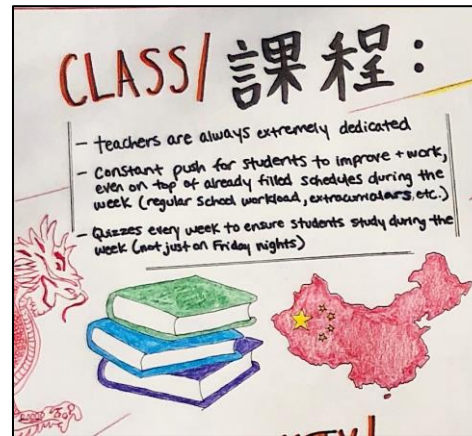 CLASS/課程:
- teachers are always extremely dedicated
- Constant push for students to improve + work,
even on top of already filled schedules during the
week (regular School workload, extracurriculars, etc.)
- Quizzes every week to ensure students study during the
week (not just on Friday nights)